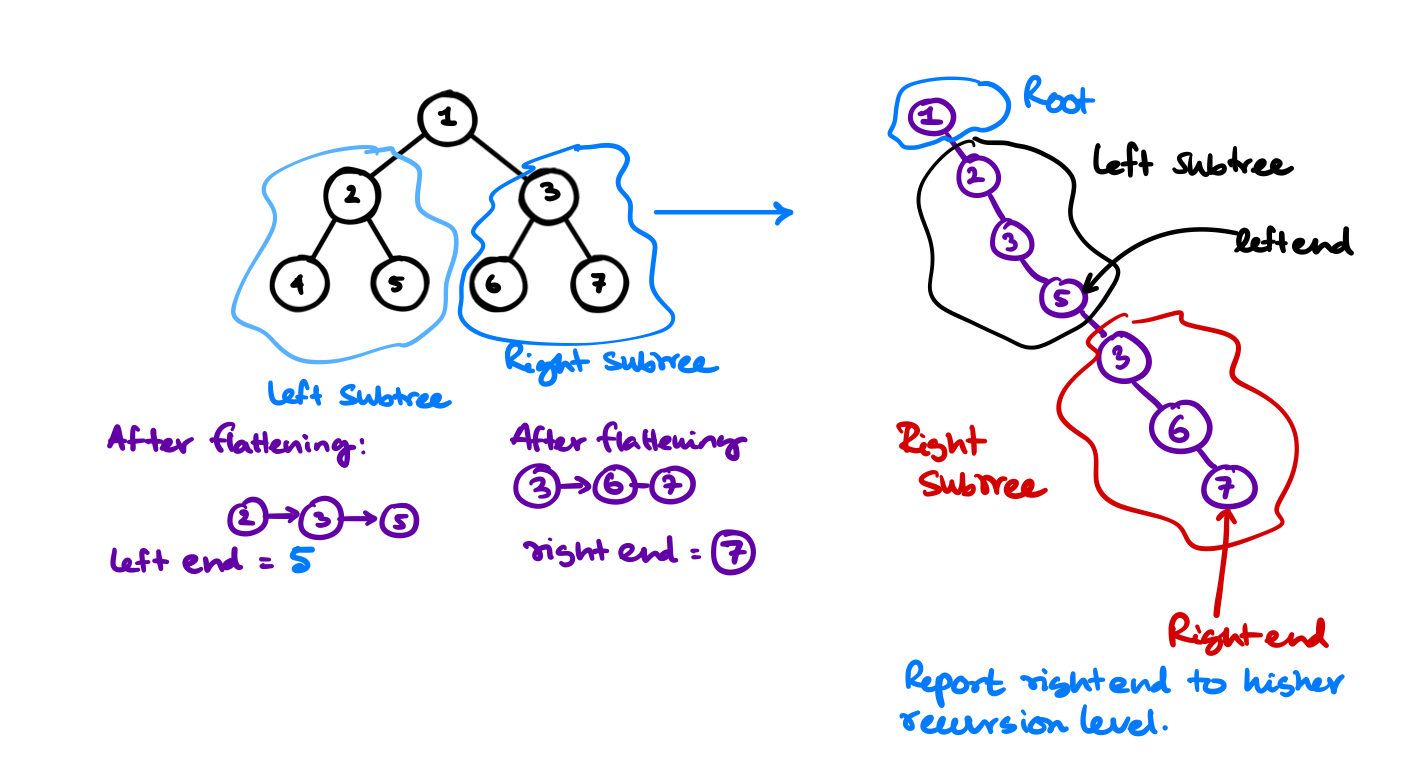 1
2
3
4
5
6
7
Left Subtree
Right Subtree
After flattening:
2 3 5
left end = 5
After flattening
3 6 7
right end = 7
1
Root
2
Left subtree
3
left end
5
3
Right
Subtree
6
7
Right end
Report right end to higher
recursion level.